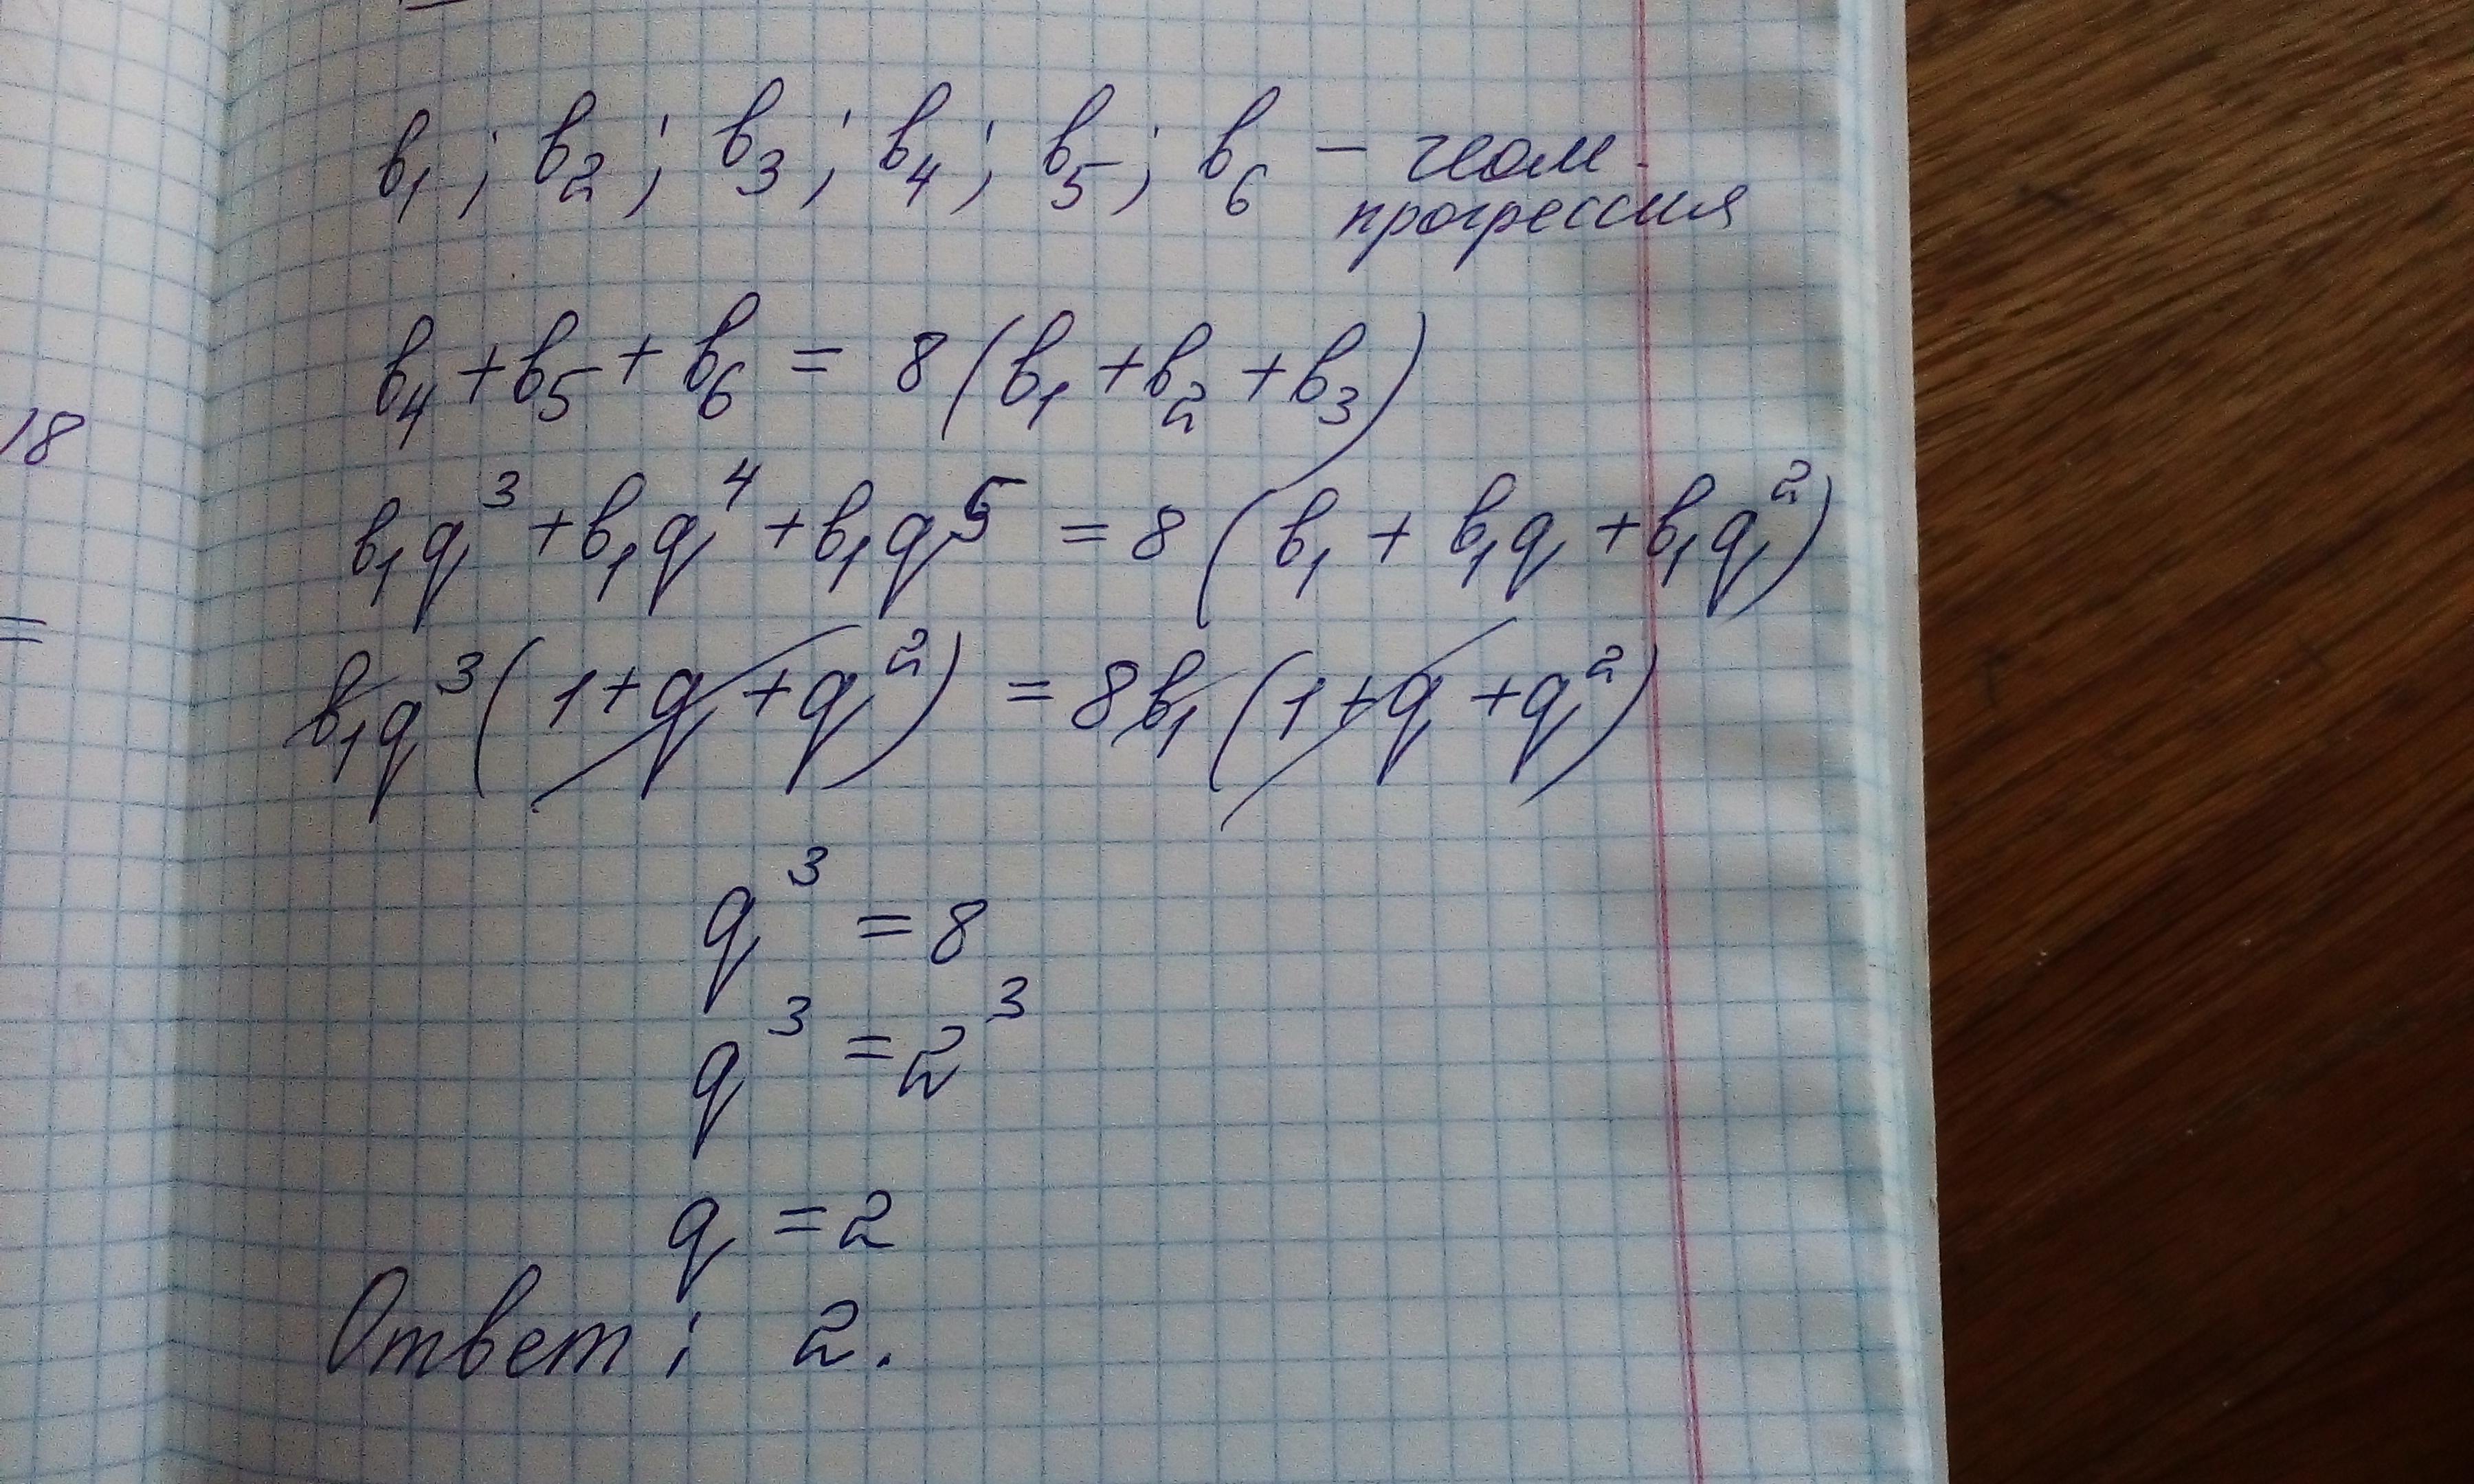 18
=
b₁; b₂; b₃; b₄; b₅; b₆ – геом.
прогрессия
b₄ + b₅ + b₆ = 8(b₁ + b₂ + b₃)
b₁q³ + b₁q⁴ + b₁q⁵ = 8(b₁ + b₁q + b₁q²)
b₁q³(1+q+q²) = 8b₁(1+q+q²)
q³ = 8
q³ = 2³
q = 2
Ответ: 2.